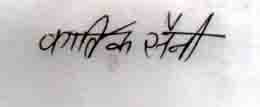 कार्तिक सैनी